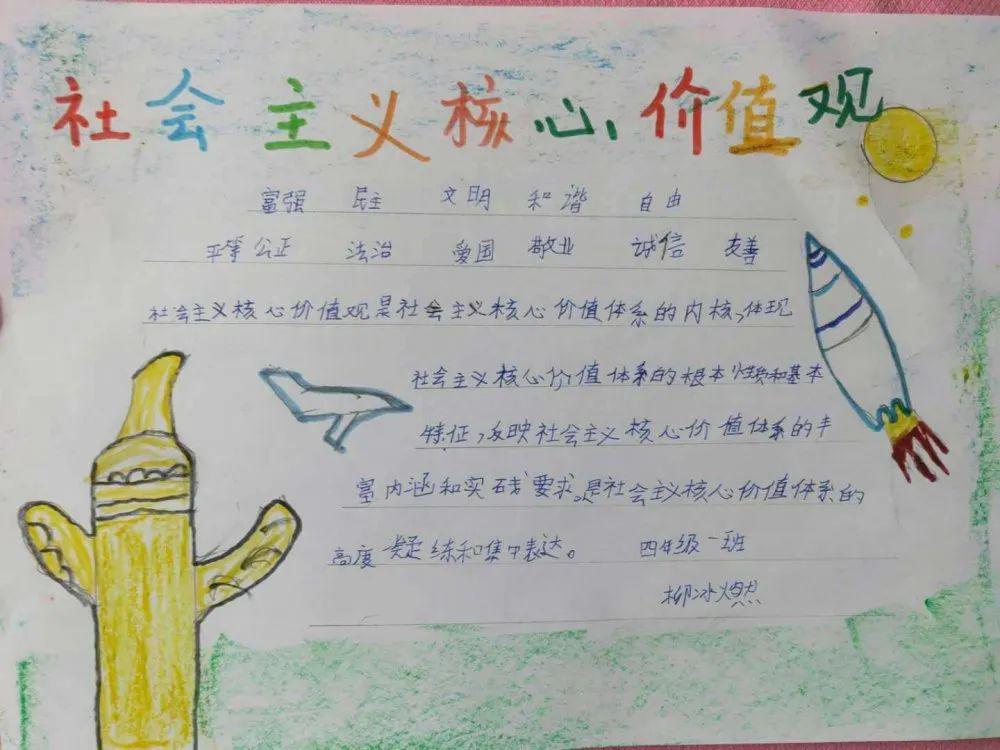 社会主义核心价值观
富强 民主 文明 和谐 自由
平等 公正 法治 爱国 敬业 诚信 友善
社会主义核心价值观是社会主义核心价值体系的内核,体现
社会主义核心价值体系的根本性质和基本
特征,反映社会主义核心价值体系的丰
富内涵和实践要求。是社会主义核心价值体系的
高度凝练和集中表达。 四年级一班
柳冰燃